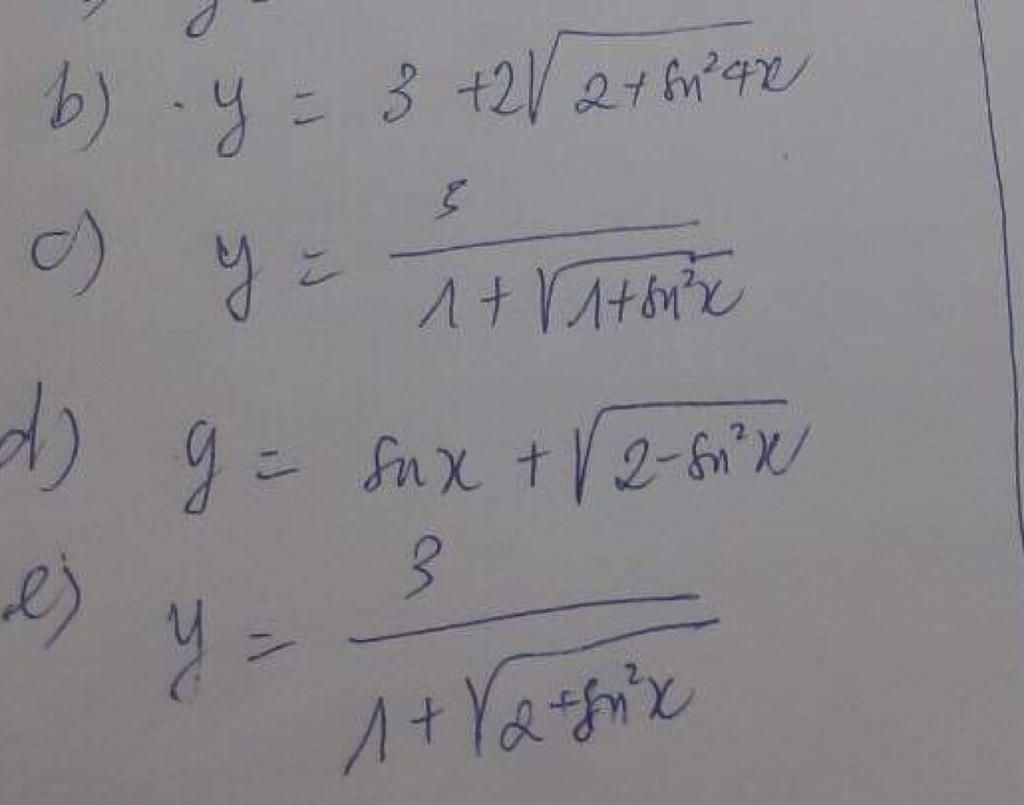 b) . y = 3 + 2√(2 + sin²4x)
c) y = 3 / (1 + √(1 + sin²x))
d) y = sin x + √(2 - sin²x)
e) y = 3 / (1 + √(2 + sin²x))